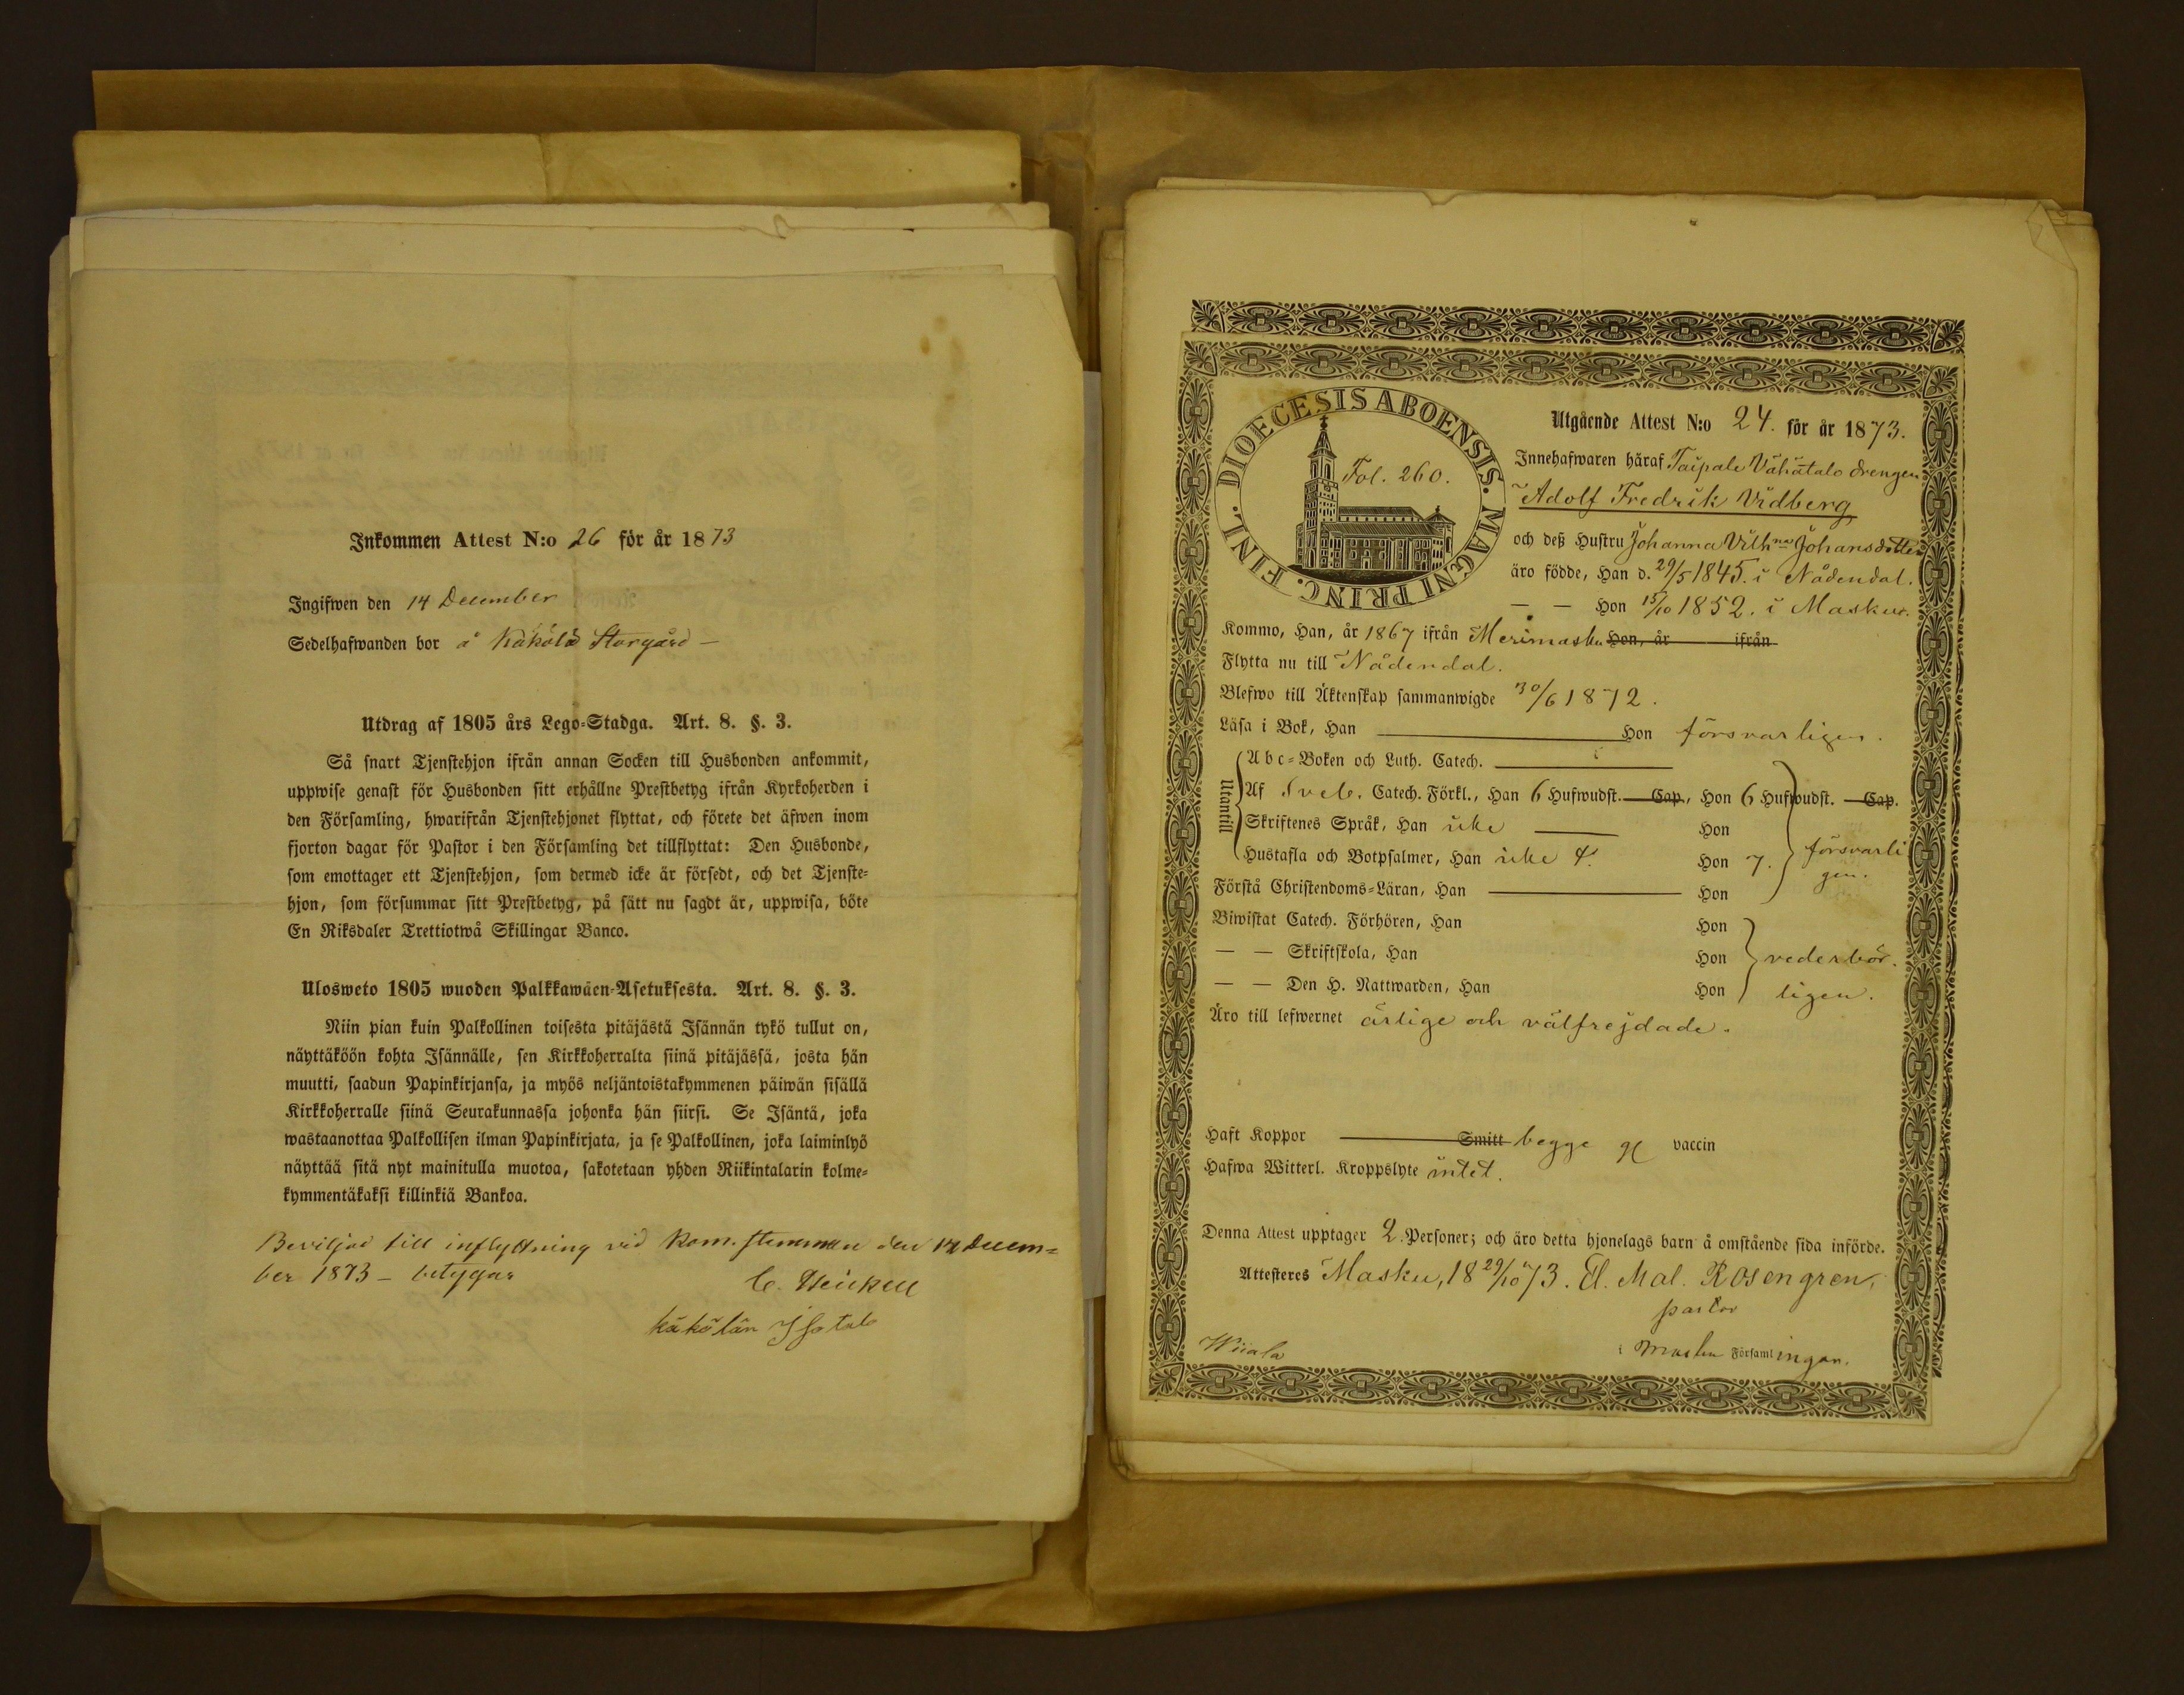 Inkommen Attest N:o 26 för år 1873
Ingifwen den 14 December
Sedelhafwanden bor å Käkölä Storgård –
Utdrag af 1805 års Lego-Stadga. Art. 8. §. 3.
Så snart Tjenstehjon ifrån annan Socken till Husbonden ankommit,
uppwise genast för Husbonden sitt erhållne Prestbetyg ifrån Kyrkoherden i
den Församling, hwarifrån Tjenstehjonet flyttat, och förete det äfwen inom
fjorton dagar för Pastor i den Församling det tillflyttat: Den Husbonde,
som emottager ett Tjenstehjon, som dermed icke är försedt, och det Tjenste-
hjon, som försummar sitt Prestbetyg, på sätt nu sagdt är, uppwisa, böte
En Riksdaler Trettiotwå Skillingar Banco.
Ulosweto 1805 wuoden Palkkawäen-Asetuksesta. Art. 8. §. 3.
Niin pian kuin Palkollinen toisesta pitäjästä Isännän tykö tullut on,
näyttäköön kohta Isännälle, sen Kirkkoherralta siinä pitäjässä, josta hän
muutti, saadun Papinkirjansa, ja myös neljäntoistakymmenen päiwän sisällä
Kirkkoherralle siinä Seurakunnassa johonka hän siirsi. Se Isäntä, joka
wastaanottaa Palkollisen ilman Papinkirjata, ja se Palkollinen, joka laiminlyö
näyttää sitä nyt mainitulla muotoa, sakotetaan yhden Riikintalarin kolme-
kymmentäkaksi killinkiä Bankoa.
Beviljad till inflyttning vid Kom. stemman den 14 Decem=
ber 1873 – betygar
C. Heickell
Käkölän Isotalo
DIOECESIS ABOENSIS. MAGNI PRINC. FINL.
Fol. 260.
Utgående Attest N:o 24. för år 1873.
Innehafwaren häraf Taipale Vähätalo drengen
Adolf Fredrik Vidberg
och deß Hustru Johanna Vilh:na Johansdotter
äro födde, Han d. 29/5 1845. i Nådendal.
— — Hon 15/10 1852. i Masku.
Kommo, Han, år 1867 ifrån Merimasku Hon, år ifrån
Flytta nu till Nådendal.
Blefwo till Äktenskap sammanwigde 30/6 1872.
Läsa i Bok, Han Hon försvarligen.
Utantill
Abc-Boken och Luth. Catech.
Af Sveb. Catech. Förkl., Han 6 Hufwudst. Cap., Hon 6 Hufwudst. Cap.
Skriftenes Språk, Han icke Hon
Hustafla och Botpsalmer, Han icke 4. Hon 7. försvarli
gen.
Förstå Christendoms-Läran, Han Hon
Biwistat Catech. Förhören, Han Hon
— — Skriftskola, Han Hon vederbör.
— — Den H. Nattwarden, Han Hon ligen.
Äro till lefwernet ärlige och välfrejdade.
Haft Koppor Smitt begge gl vaccin
Hafwa Witterl. Kroppslyte intet.
Denna Attest upptager 2. Personer; och äro detta hjonelags barn å omstående sida införde.
Attesteres Masku, 18 29/10 73. El. Mal. Rosengren,
pastor
Wiiala i Masku Församlingar.